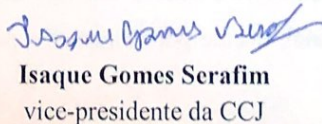 Isaque Gomes Serafim
Isaque Gomes Serafim
vice-presidente da CCJ